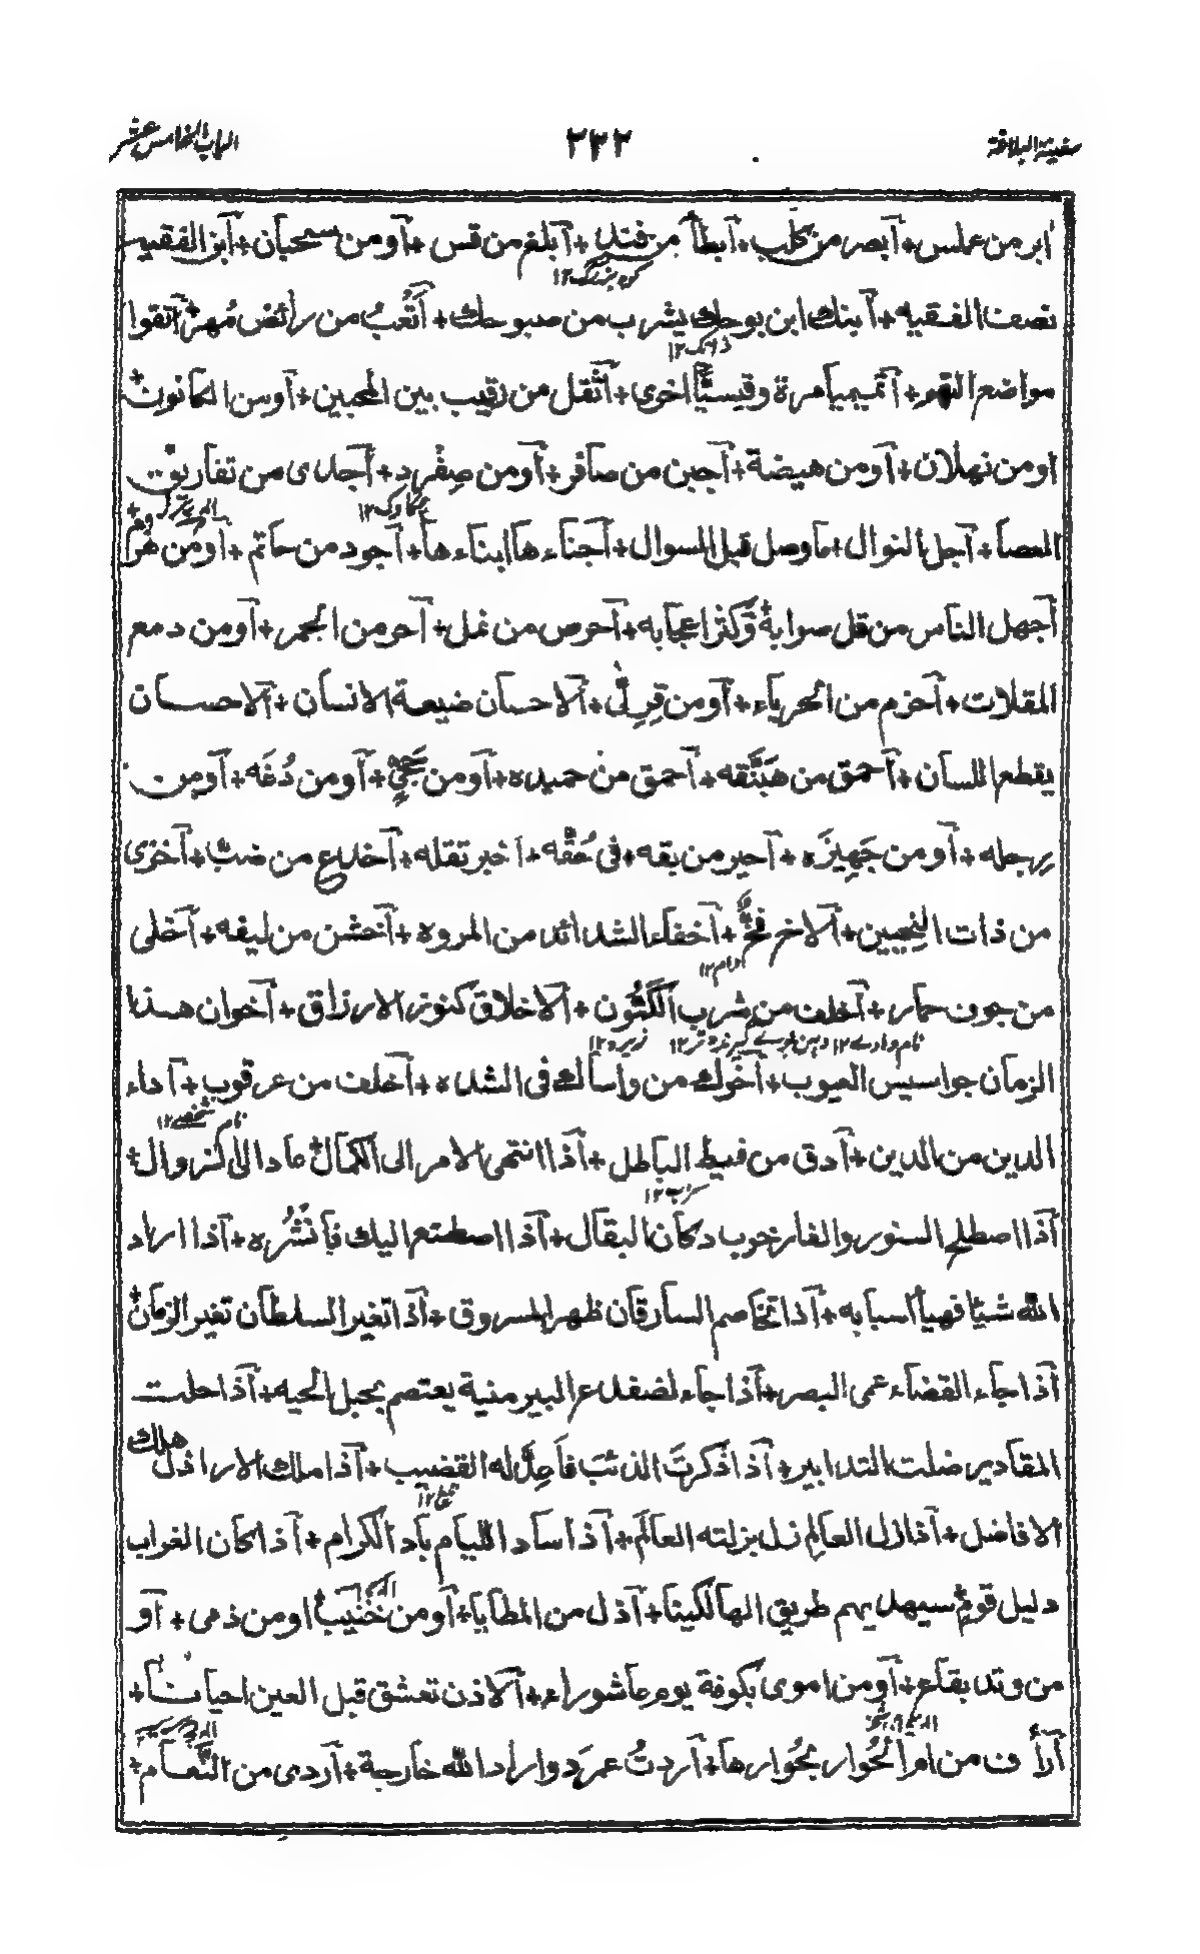 سفينة البلاغة ٢٣٢ الباب الخامس عشر
ابر من عملس + آبصر من كلب + آبطأ من فند + آبلغ من قس + آو من سحبان + آبن الفقيه
نصف الفقيه + آبنك ابن بوحك يشرب من صبوحك + آتْعَبُ من رائض مُهر + آتقوا
مواضع التهم + آتميميا مرة وقيسيًّا اخرى + آثقل من رقيب بين المحبين + آو من الكانون +
او من ثهلان + آو من هيضة + آجبن من صافر + آو من صِفْرِد + آجدى من تفاريق
العصا + آجل النوال + ما وصل قبل السوال + آجناءها ابناءها + آجود من حاتم + آو من هرم +
آجهل الناس من قل صوابه وَكثر اعجابه + آحرص من نمل + آحر من الجمر + آو من دمع
المقلات + آحزم من الحرباء + آو من قِرِلّى + آلاحسان ضيعة الانسان + آلاحسان
يقطع اللسان + آحمق من هَبَنَّقه + آحمق من حميده + آو من جُحَى + آو من دُغَه + آو من
رجله + آو من جَهِيزَه + آحير من بقه + فى حُقّه + آخبر تقله + آخدع من ضبّ + آخزى
من ذات النِحيين + آلاخ فخّ + آخفاء الشدائد من المروه + آخشن من ليفه + آخلى
من جوف حمار + آخلف من شرب الكَمُّون + آلاخلاق كنوز الارزاق + آخوان هذا
الزمان جواسيس العيوب + آخوك من واساك فى الشده + آخلف من عرقوب + آداء
الدين من الدين + آدق من خيط الباطل + آذا انتهى الامر الى الكمال عاد الى الزوال +
آذا اصطلح السنور والفار خرب دكان البقال + آذا اصطنع اليك فانْشُره + آذا اراد
الله شيئا فهيأ اسبابه + آذا تخاصم السارقان ظهر المسروق + آذا تغير السلطان تغير الزمان +
آذا جاء القضاء عمى البصر + آذا جاء لضفدع البير منية يعتصم بحبل الحيه + آذا حلت
المقادير ضلت التدابير + آذا ذكرتَ الذئبَ فاَعِدَّ له القضيب + آذا ملك الاراذل هلك
الافاضل + آذا زل العالِم زل بزلته العالَم + آذا ساد اللئيام باد الكرام + آذا كان الغراب
دليل قوم سيهديهم طريق الهالكينا + آذل من المطايا + آو من او من ذمى + آو
من وتد بقاع + آو من اموى بكوفة يوم عاشوراء + آلاذن تعشق قبل العين احيانا +
آرأف من ام الحُوار بحُوارها + آردتُ عمرَو واراد الله خارجة + آردى من